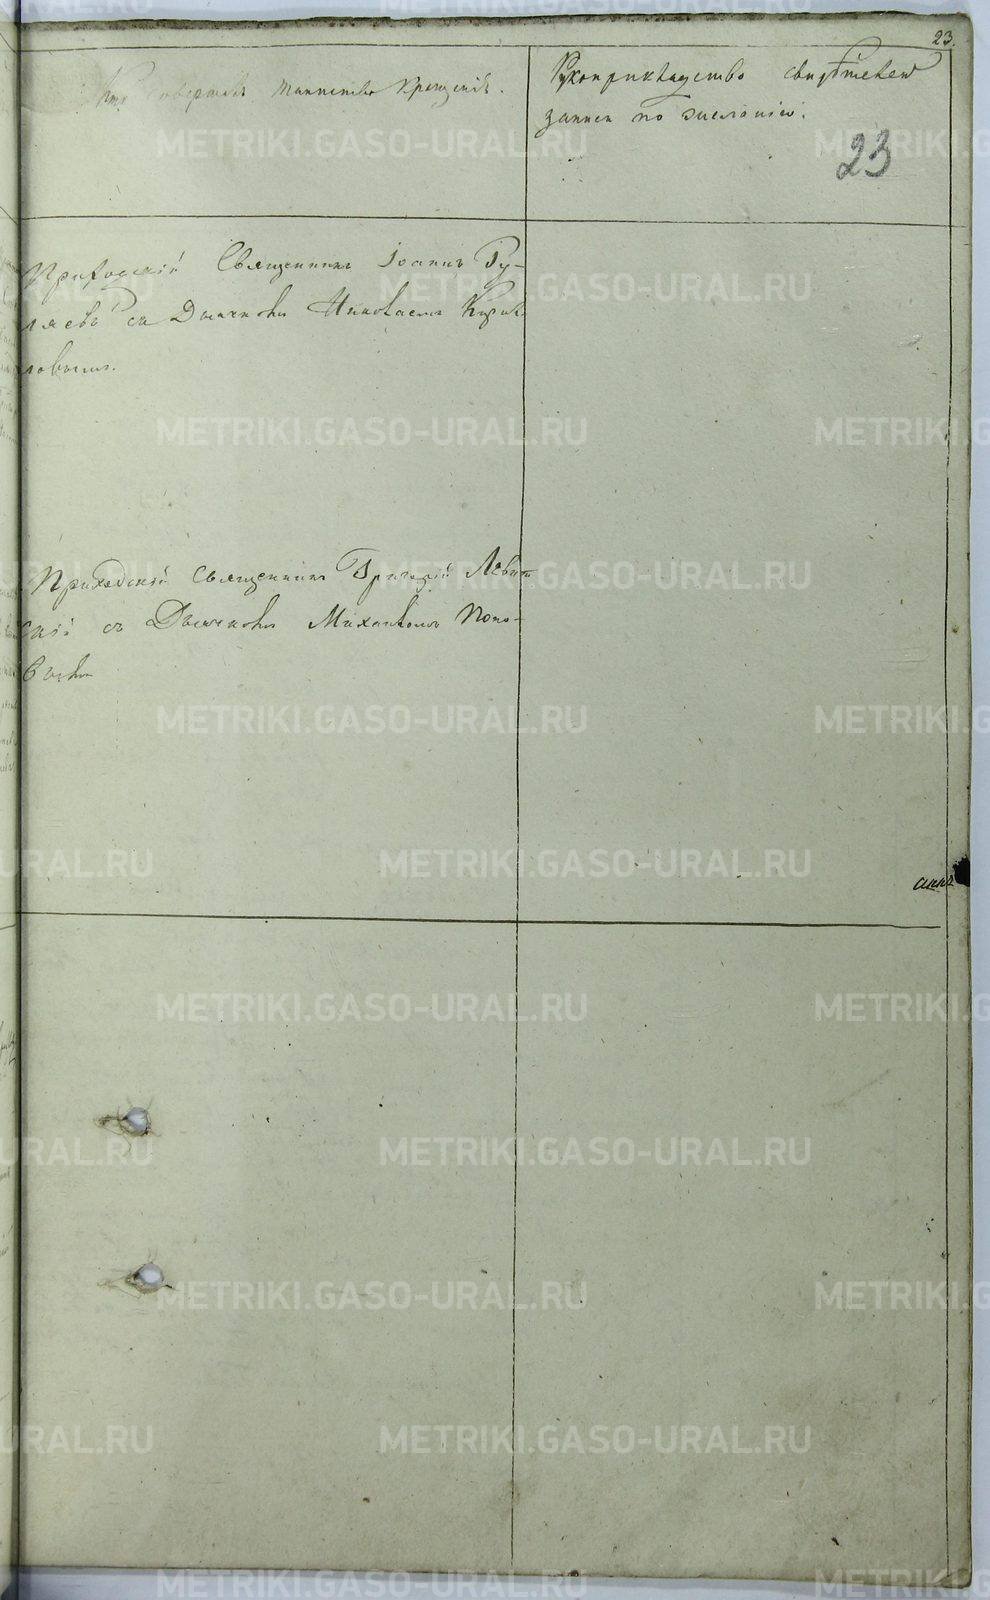 23.
Кто совершалъ таинство крещенія.
Рукоприкладство свидѣтелей
записи по желанію.
23
Приходскій Священникъ Іоаннъ Гу-
ляевъ съ Дьячкомъ Николаемъ Кирил-
ловымъ.
Приходскій Священникъ Григорій Левит-
скій съ Дьячкомъ Михаиломъ Попо-
вымъ
METRIKI.GASO-URAL.RU